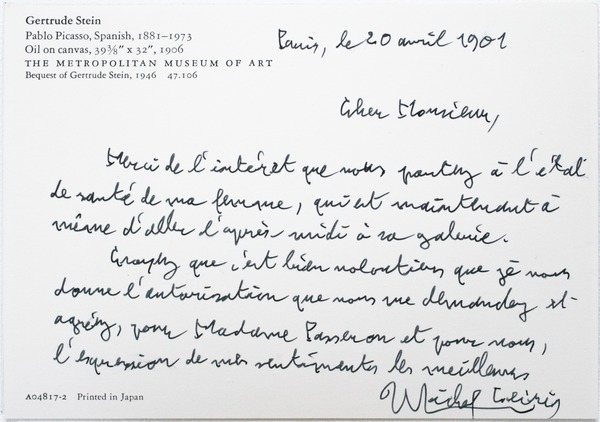 Gertrude Stein
Pablo Picasso, Spanish, 1881–1973
Oil on canvas, 39⅜" x 32", 1906
THE METROPOLITAN MUSEUM OF ART
Bequest of Gertrude Stein, 1946 47.106
Paris, le 20 avril 1981
Cher Monsieur,
Merci de l'intérêt que vous portez à l'état
de santé de ma femme, qui est maintenant à
même d'aller l'après-midi à sa galerie.
Croyez que c'est bien volontiers que je vous
donne l'autorisation que vous me demandez et
agréez, pour Madame Passeron et pour vous,
l'expression de mes sentiments les meilleurs
Michel Leiris
A04817-2 Printed in Japan